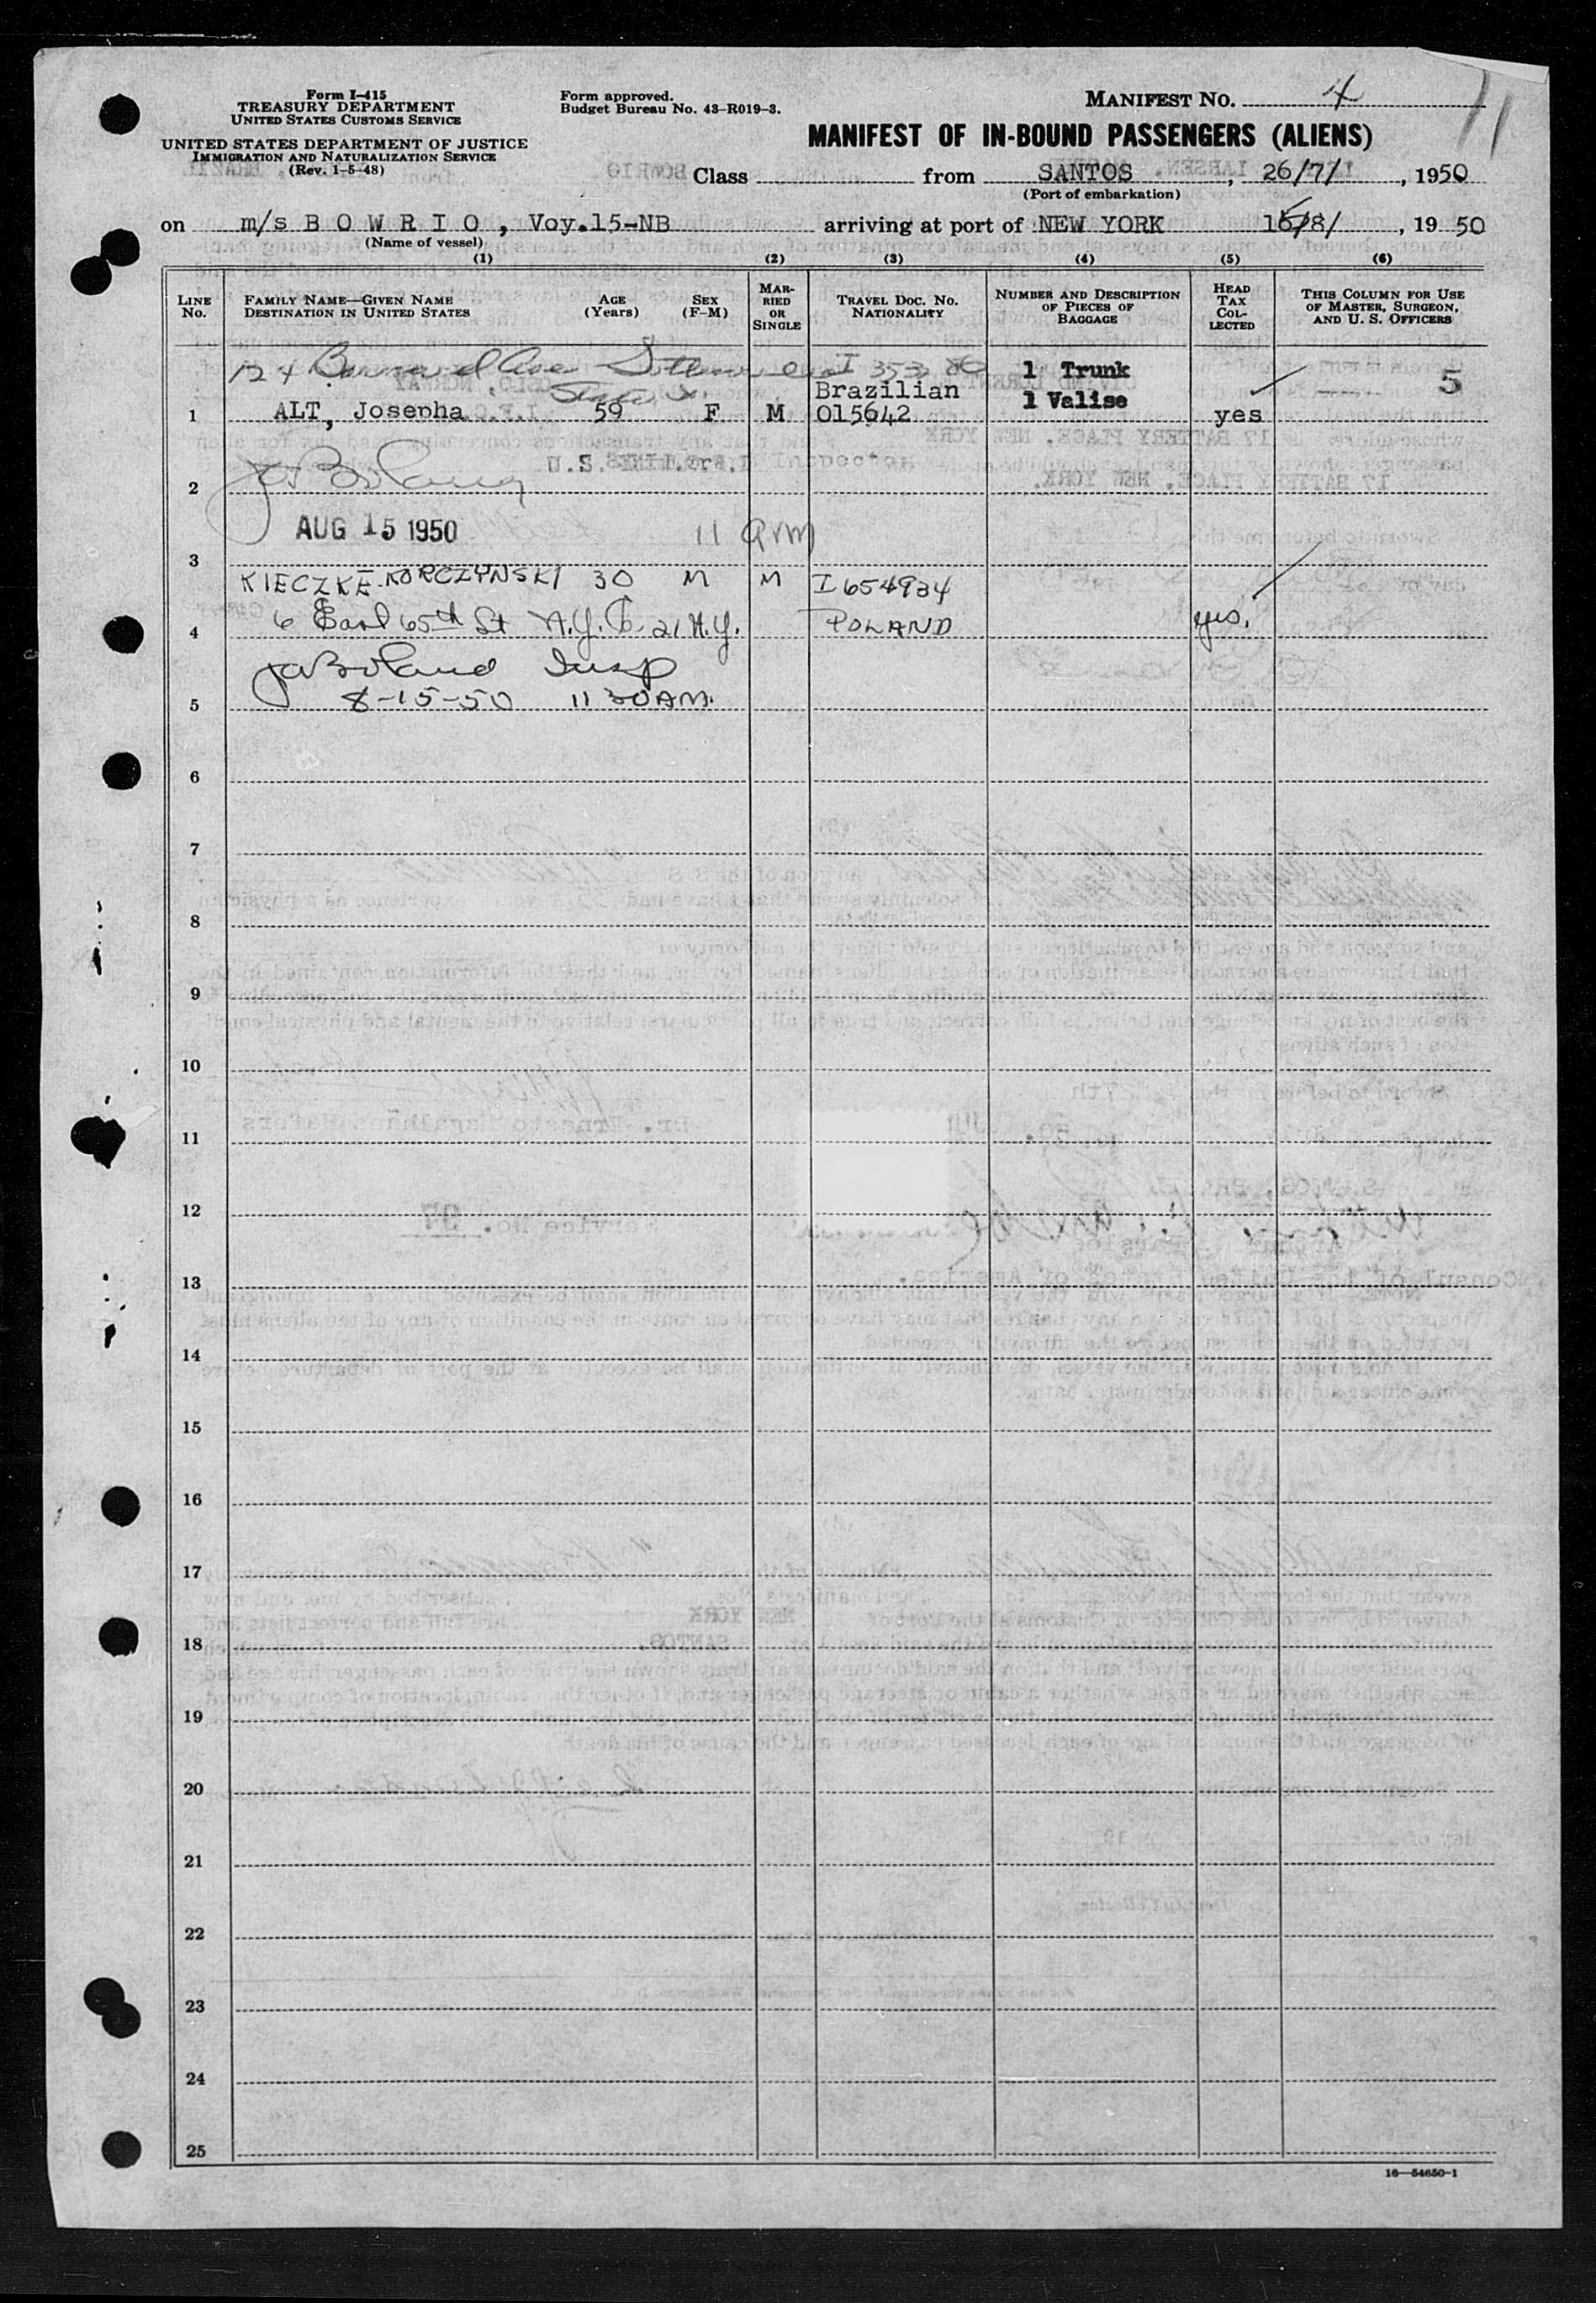 Form I-415
TREASURY DEPARTMENT
UNITED STATES CUSTOMS SERVICE
UNITED STATES DEPARTMENT OF JUSTICE
IMMIGRATION AND NATURALIZATION SERVICE
(Rev. 1-5-48)
Form approved.
Budget Bureau No. 43-R019-3.
MANIFEST NO. 4
11
MANIFEST OF IN-BOUND PASSENGERS (ALIENS)
Class from SANTOS, 26/7/, 1950
(Port of embarkation)
on m/s B O W R I O , Voy.15-NB arriving at port of NEW YORK 15/8/, 1950
(Name of vessel)
(1) (2) (3) (4) (5) (6)
LINE No. FAMILY NAME—GIVEN NAME DESTINATION IN UNITED STATES AGE (Years) SEX (F-M) MARRIED OR SINGLE TRAVEL DOC. NO. NATIONALITY NUMBER AND DESCRIPTION OF PIECES OF BAGGAGE HEAD TAX COLLECTED THIS COLUMN FOR USE OF MASTER, SURGEON, AND U. S. OFFICERS
124 Ave I 353 1 Trunk
Brazilian 1 Valise 5
1 ALT, Josepha 59 F M 015642 yes
Inspector
2
AUG 15 1950 11 AM
3
KIECZKE-KORCZYNSKI 30 M M I 654934
4 6 East 65th St N.Y.C. 21 N.Y. POLAND yes.
Insp
5 8-15-50 11 30 AM.
6
7
8
9
10
11
12
13
14
15
16
17
18
19
20
21
22
23
24
25
16—54650-1